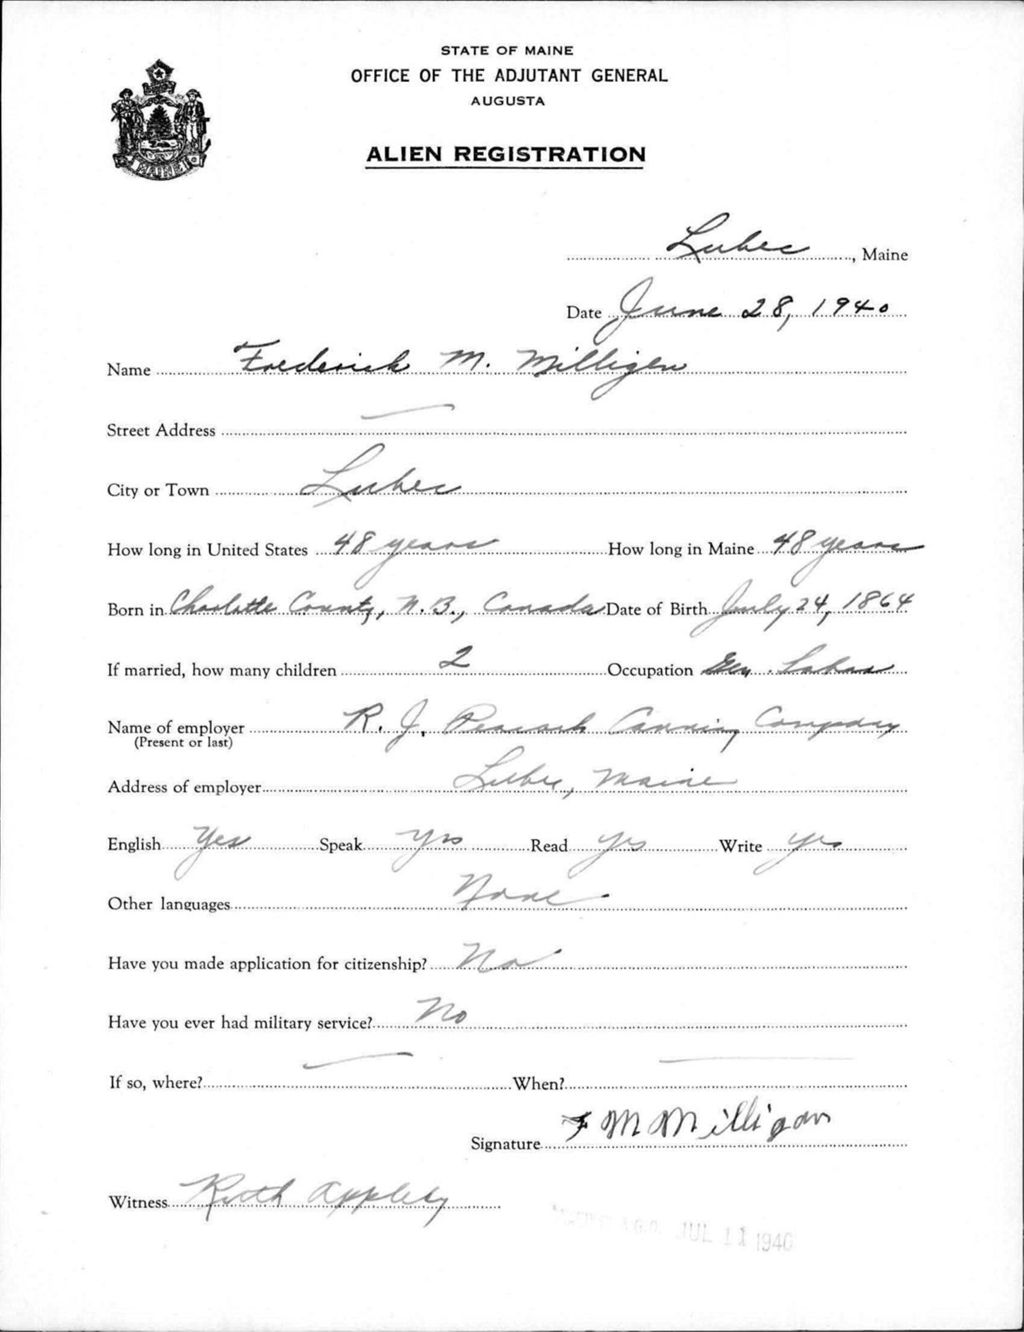 STATE OF MAINE
OFFICE OF THE ADJUTANT GENERAL
AUGUSTA
MAINE
ALIEN REGISTRATION
Lubec, Maine
Date June 28, 1940
Name Frederick M. Milligen
Street Address —
City or Town Lubec
How long in United States 48 years How long in Maine 48 years
Born in Charlotte County, N.B., Canada Date of Birth July 24, 1864
If married, how many children 2 Occupation Gen. Labor
Name of employer R. J. Peacock Canning Company
(Present or last)
Address of employer Lubec, Maine
English Yes Speak Yes Read yes Write yes
Other languages None
Have you made application for citizenship? No
Have you ever had military service? No
If so, where? — When? —
Signature F M Milligan
Witness Ruth Appleby
A.G.O. JUL 11 1940